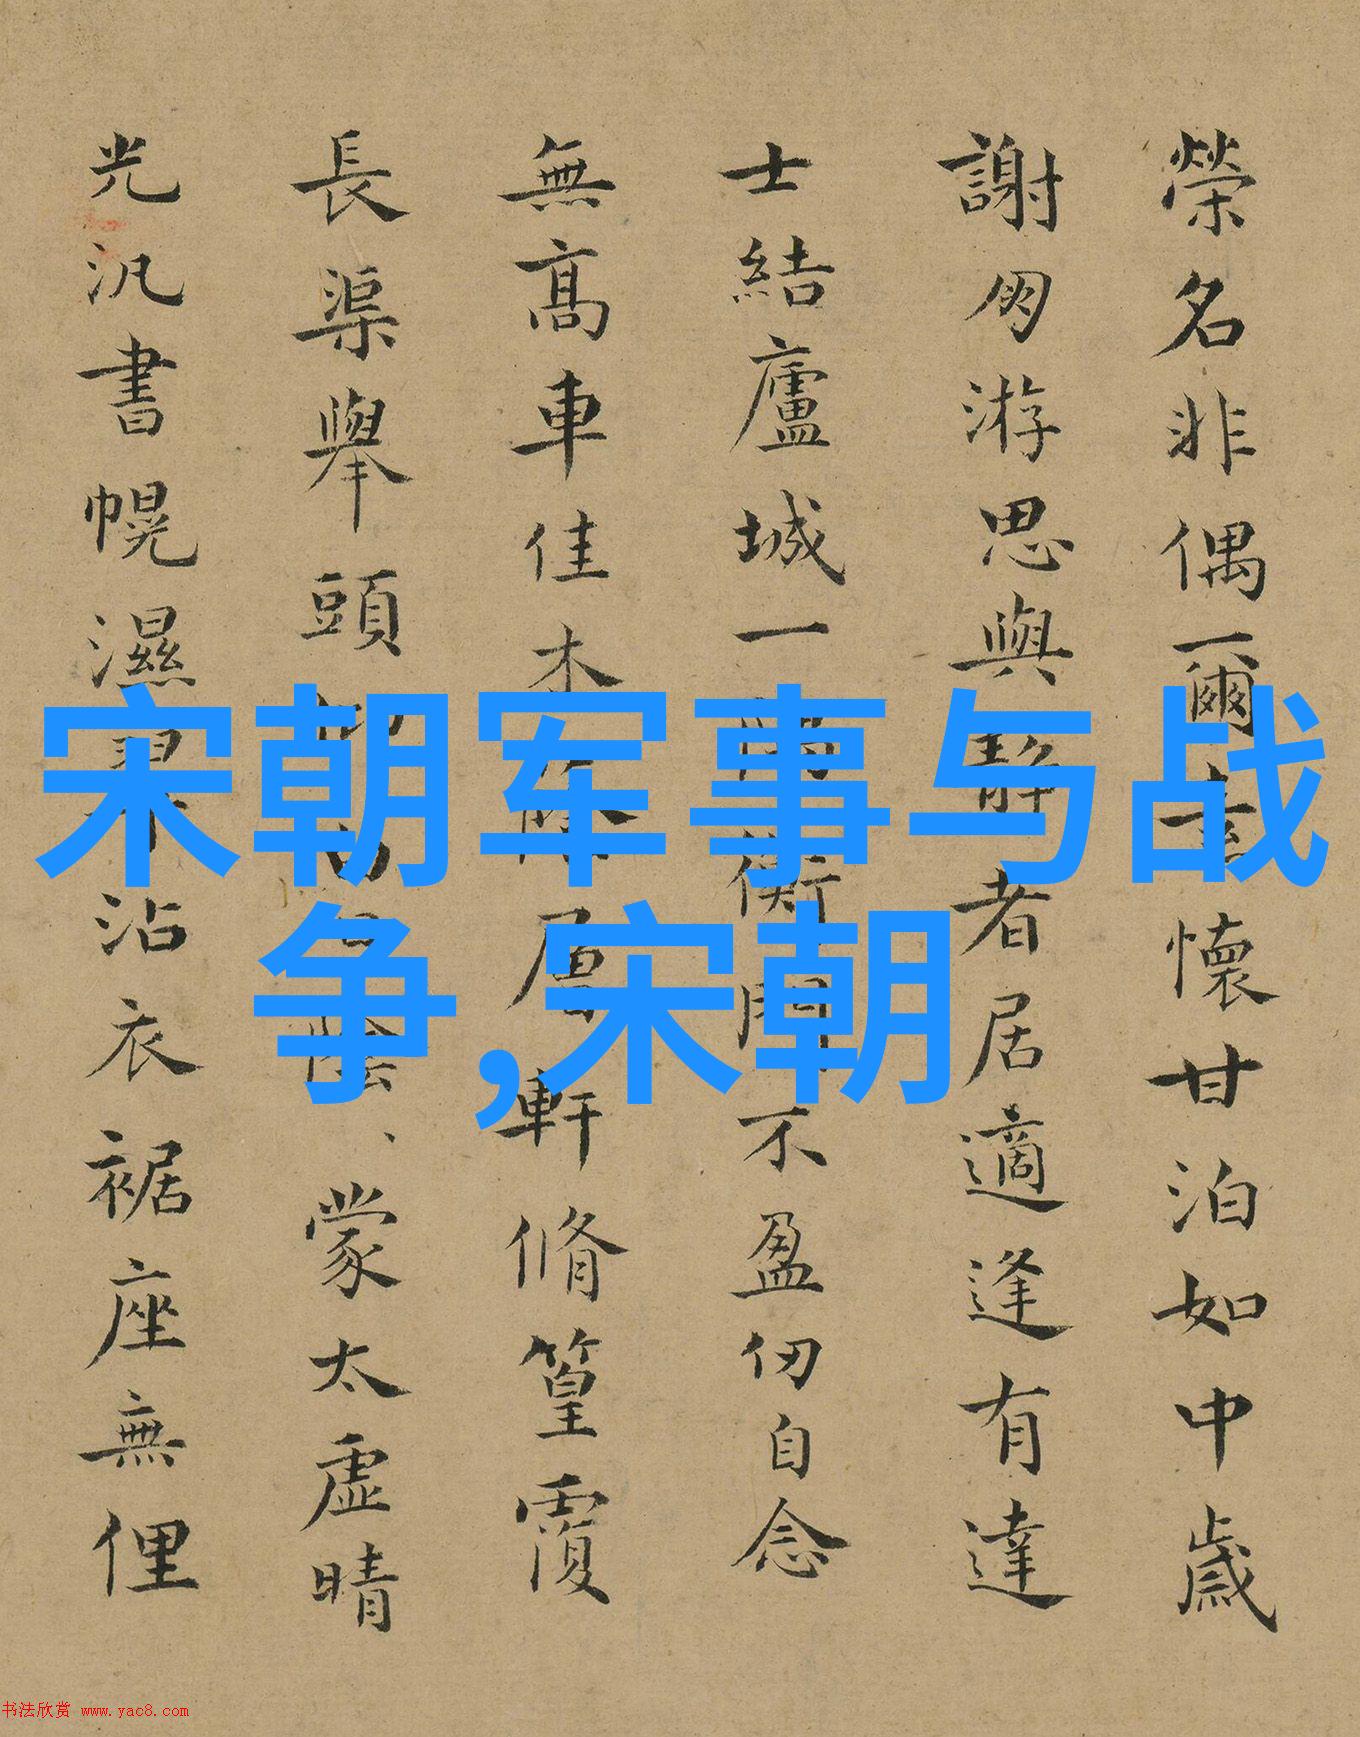 宋朝军事与战
争,宋朝
榮名非偶爾玄懷甘泊如中歲
謝朋游思與靜者居適逢有達
士結廬城一隅衡門不盈仞自念
無髙車佳木層軒脩篁覆
長渠舉頭陰、蒙太虛晴
光汎書幌濕翠沾衣裾座無俚
书法欣赏 www.yac8.com